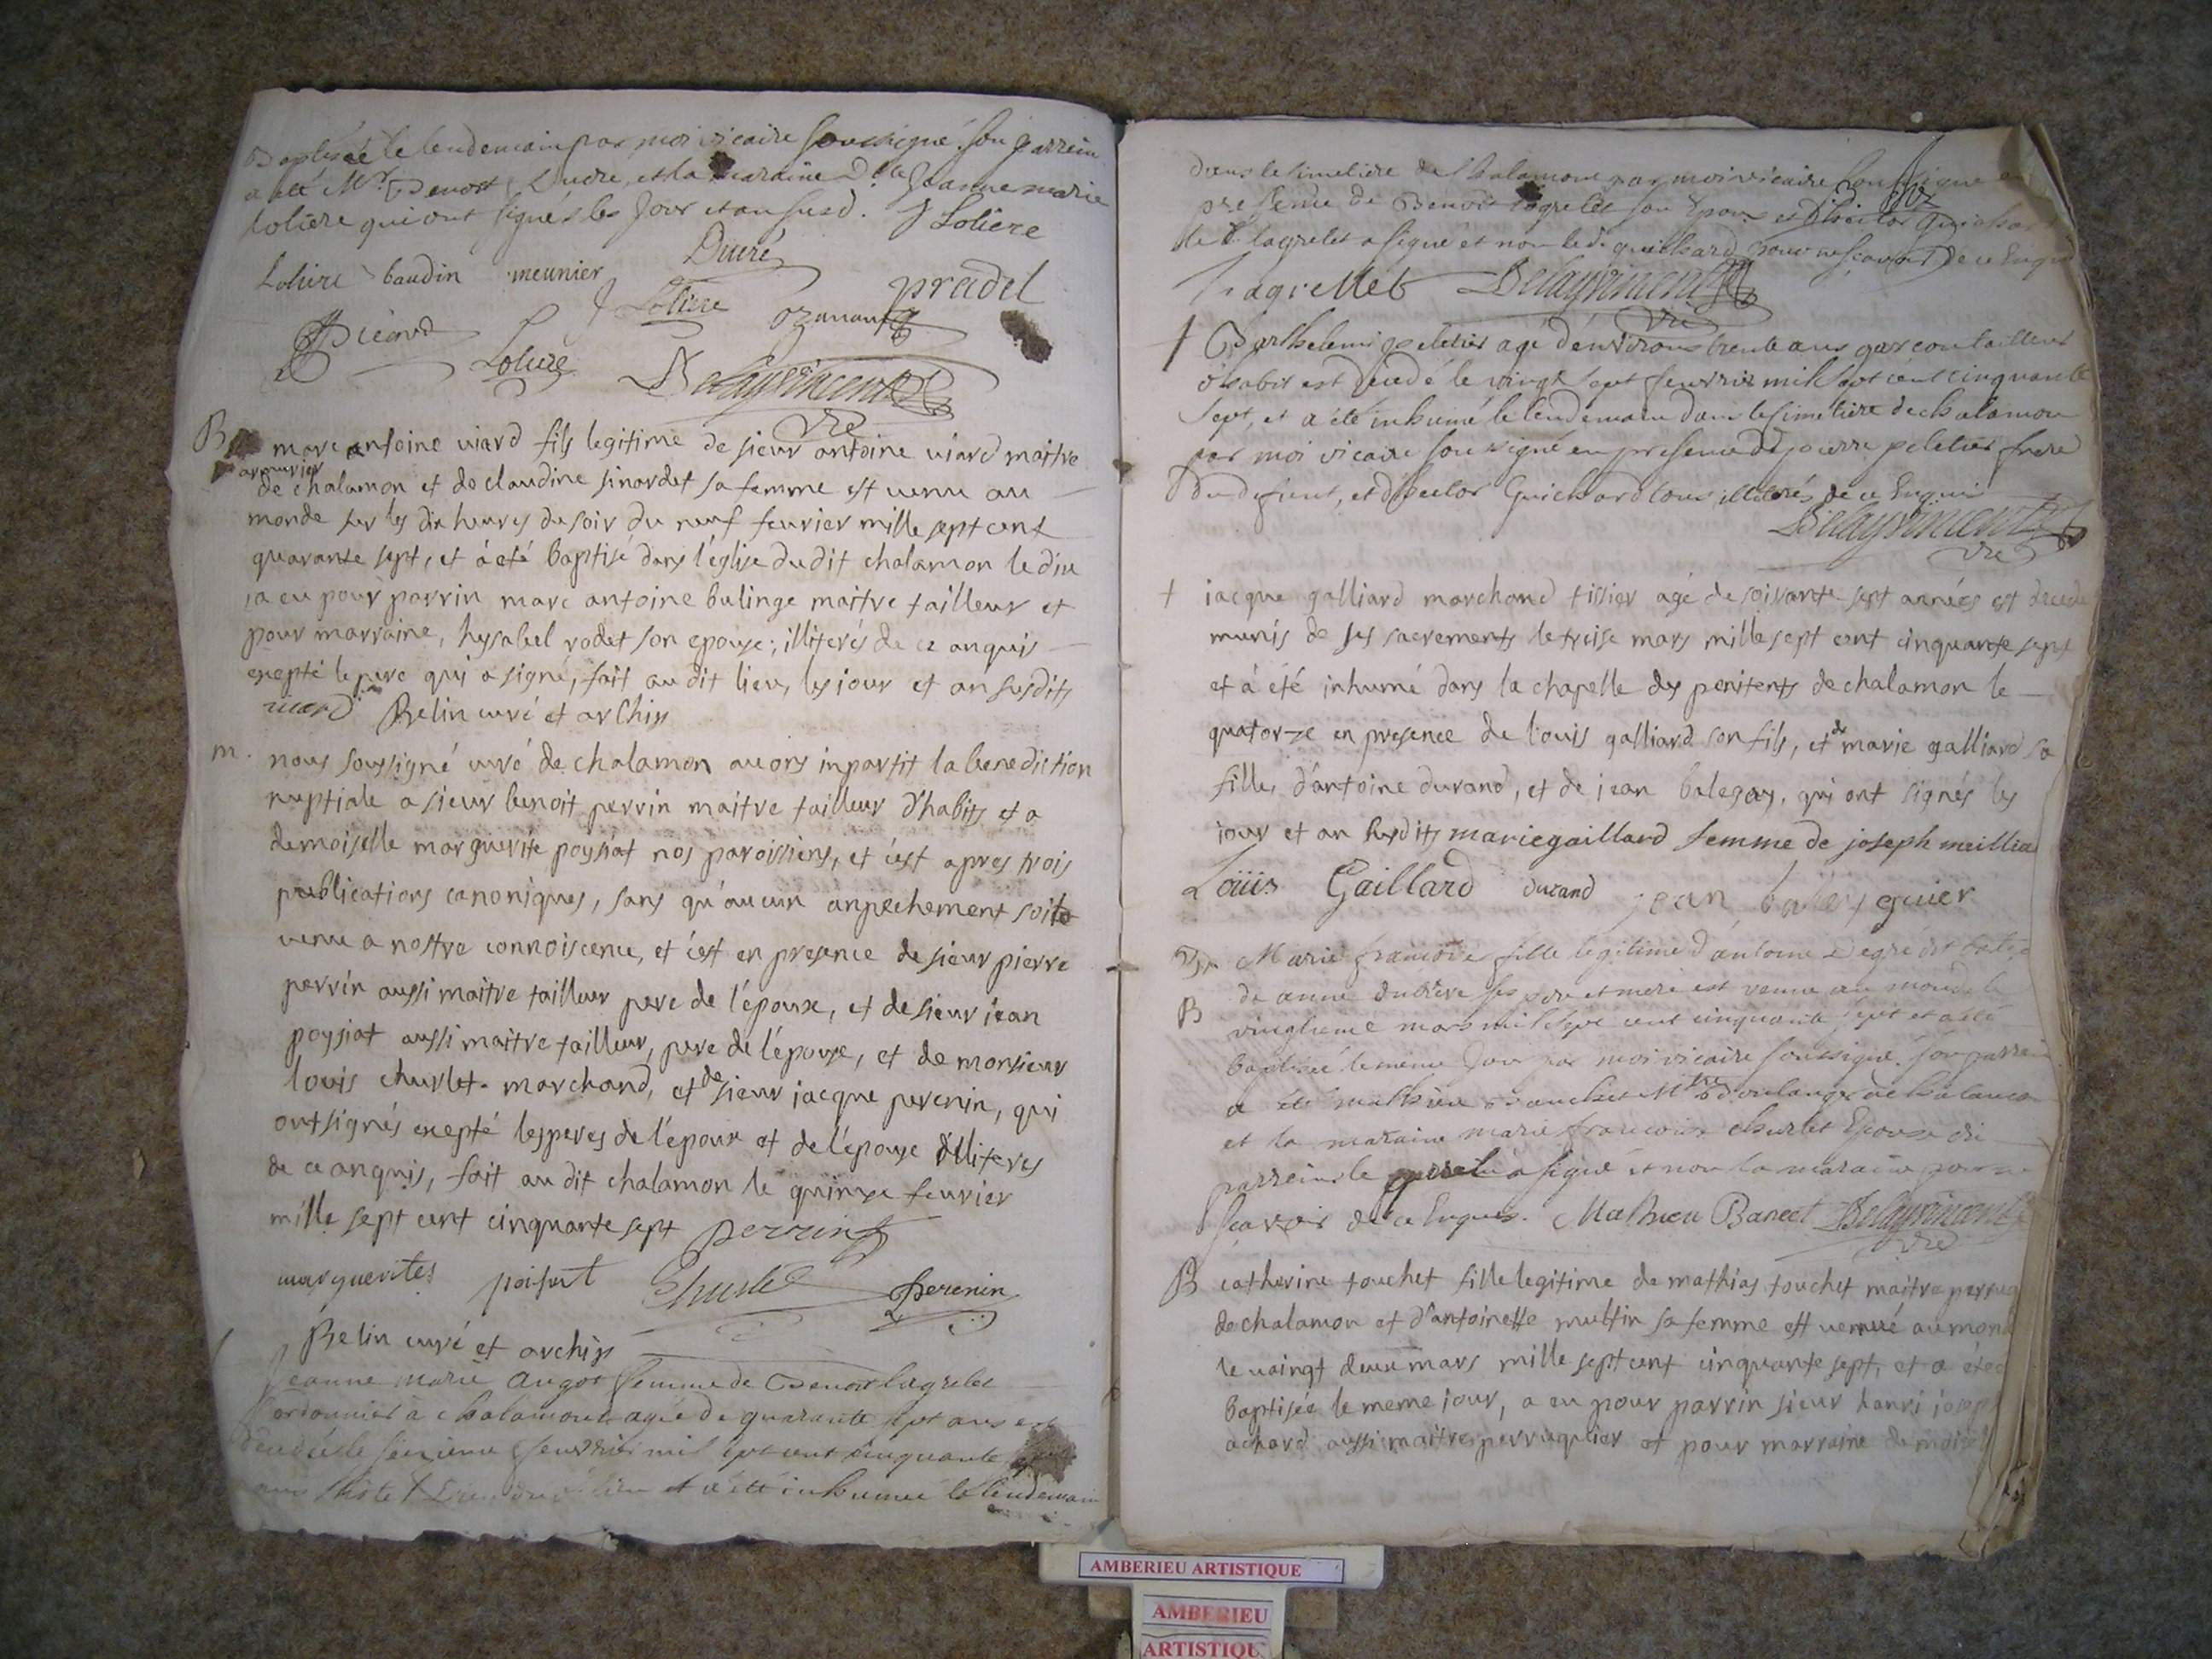 Baptisée le lendemain par moi vicaire soussigné. son parrein
a été Mr Benoit Ducre, et la maraine Dlle Jeanne marie
Loliere qui ont signés les Jour et an susd. J Loliere
Ducré
Loliere baudin meunier
J Loliere ozanam pradel
Picard
Loliere Delayvincent
vre
B marc antoine viard fils legitime de sieur antoine viard maitre
armurier
de chalamon et de claudine sinardet sa femme est venu au
monde sur les dix heures du soir du neuf feurier mille sept cent
quarante sept, et á eté baptisé dans l'église dudit chalamon le dix
, a eu pour parrin marc antoine bulinge maitre tailleur et
pour marraine, hysabel rodet son epouse; illiterés de ce anquis
exepté le pere qui a signé, fait au dit lieu, les jour et an susdits
viard Belin curé et archip
m. nous soussigné curé de chalamon auons inpartit la benediction
nuptiale a sieur benoit perrin maitre tailleur d'habits et a
demoiselle marguerite poysiat nos paroissiens, et c'est apres trois
publications canoniques, sans qu'aucun anpechement soite
venu a nostre connoiscence, et c'est en presence de sieur pierre
perrin aussi maitre tailleur pere de l'époux, et de sieur jean
poysiat aussi maitre tailleur, pere de l'épouse, et de monsieur
louis churlet marchand, et de sieur jacque perenin, qui
ont signés exepté les peres de l'époux et de l'épouse illiteres
de ce anquis, fait au dit chalamon le quinze feurier
mille sept cent cinquante sept perrin
marguerites poisat Churlet perenin
Belin curé et archip
Jeanne marie augot femme de Benoit lagrelet
Cordonnier à chalamont agée de quarante sept ans est
decedée le seizieme feuvrier mil sept cent cinquante
et a été inhumée le lendemain
dans le simetiere de Chalamont par moi vicaire soussigné
presence de Benoit lagrelet son Epoux et d'hector Guichard
le d. lagrelet a signé et non led. guichard pour ne scavoir de ce Enquis
Lagrellet Delayvincent
vre
† Barthelemi peletier agé d'environs trente ans garcon tailleur
d'habit est decedé le vingt sept feuvrier mil sept cent cinquante
sept, et a été inhumé le lendemain dans le simetiere de chalamon
par moi vicaire soussigné en presence de pierre peletier frere
du defient, et d'hector Guichard tous illiterés de ce Enquis
Delayvincent
vre
† jacque galliard marchand tissier agé de soisante sept années est decede
munis de ses sacrements le treise mars mille sept cent cinquante sept
et á été inhumé dans la chapelle des penitents de chalamon le
quatorze en presence de louis galliard son fils, et de marie galliard sa
fille, d'antoine durand, et de jean balegay, qui ont signés les
jour et an susdits marie gaillard femme de joseph meillia
Loüis Gaillard durand jean baleyguier
Marie francoise fille legitime d'antoine Degré
B de anne dubreve ses pere et mere est venue au monde le
vingtieme mars mil sept cent cinquante sept et a été
baptisée le même Jour par moi vicaire soussigné. son parrain
a été mathieu Banchet Mtre Boulanger de chalamon
et la maraine marie francoise churlet Epouse du
parrein le parrein a signé et non la maraine pour ne
scavoir de ce Enquis. Mathieu Bancel Delayvincent
vre
B catherine touchet fille legitime de mathias touchet maitre perruq
de chalamon et d'antoinette multin sa femme est venué au mon
le vaingt deux mars mille sept cent cinquante sept, et a été
baptisée le meme jour, a eu pour parrin sieur hanri josep
achard aussi maitre perruquier et pour marraine demoisel
AMBERIEU ARTISTIQUE
AMBERIEU
ARTISTIQU